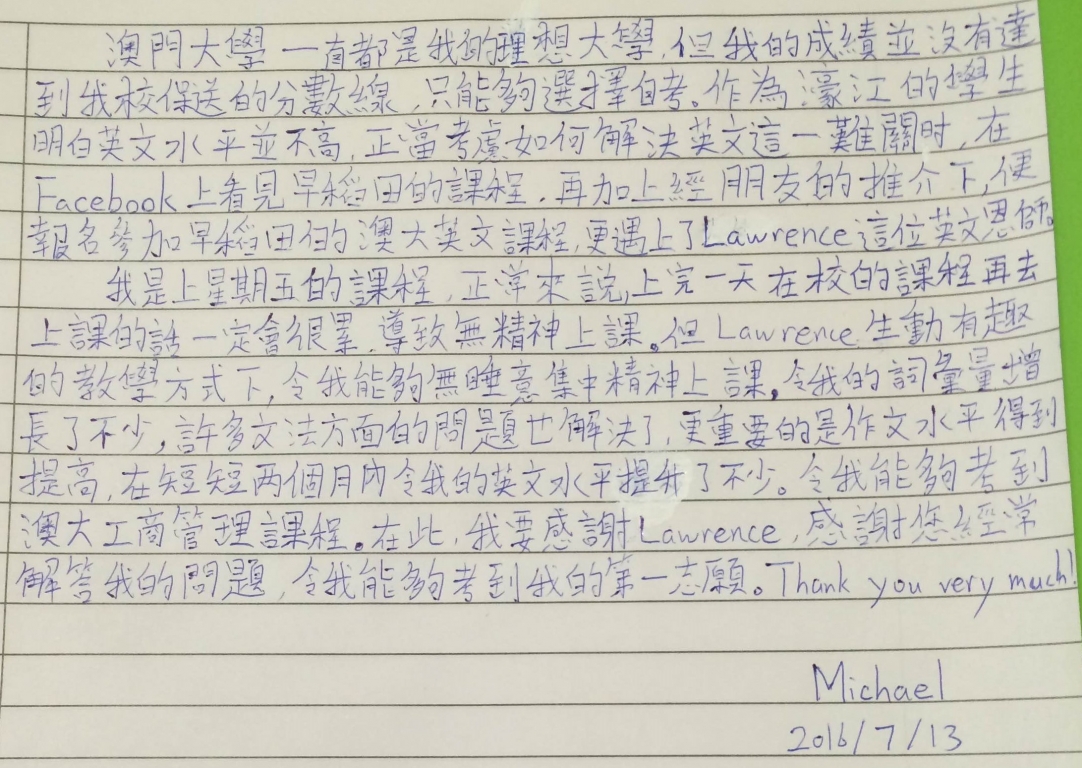 澳門大學一直都是我的理想大學,但我的成績並沒有達
到我校保送的分數線,只能夠選擇自考。作為濠江的學生
明白英文水平並不高,正當考慮如何解決英文這一難關时,在
Facebook上看見早稻田的課程,再加上經朋友的推介下,便
報名參加早稻田的澳大英文課程,更遇上了Lawrence這位英文恩師。
我是上星期五的課程,正常來說,上完一天在校的課程再去
上課的話一定會很累,導致無精神上課。但Lawrence生動有趣
的教學方式下,令我能夠無睡意集中精神上課。令我的詞彙量增
長了不少,許多文法方面的問題也解決了,更重要的是作文水平得到
提高,在短短两個月內令我的英文水平提升了不少。令我能夠考到
澳大工商管理課程。在此,我要感謝Lawrence,感謝您經常
解答我的問題,令我能夠考到我的第一志願。Thank you very much!
Michael
2016/7/13